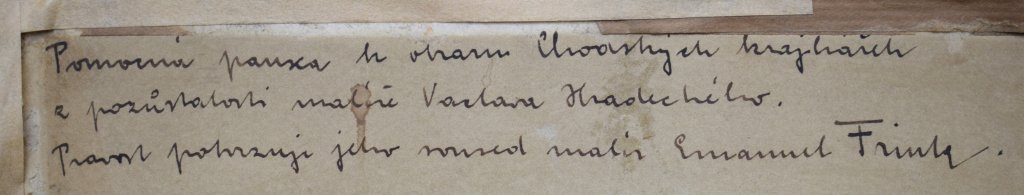 Pomocná pauza k obrazu Chodských krajkářek
z pozůstalosti malíře Vaclava Hradeckého.
Pravost potvrzuji jeho soused malíř Emanuel Frinta.